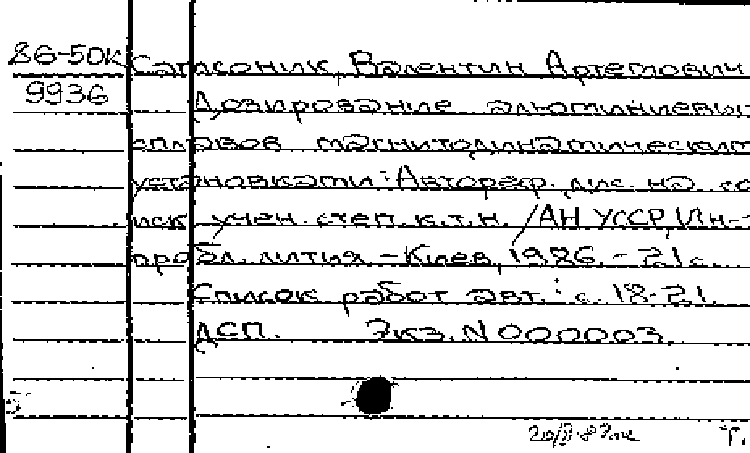 86-50К Сапасоник, Валентин Артемович
9936 Дозирование алюминиевых
сплавов магнитодинамическим
установками: Автореф. дис. на со
иск. учен. степ. к.т.н. /АН УССР, Ин-т
пробл. литья – Киев, 1986. – 21с.
Список работ авт.: с. 18-21.
ДСП. Экз. N 000003.